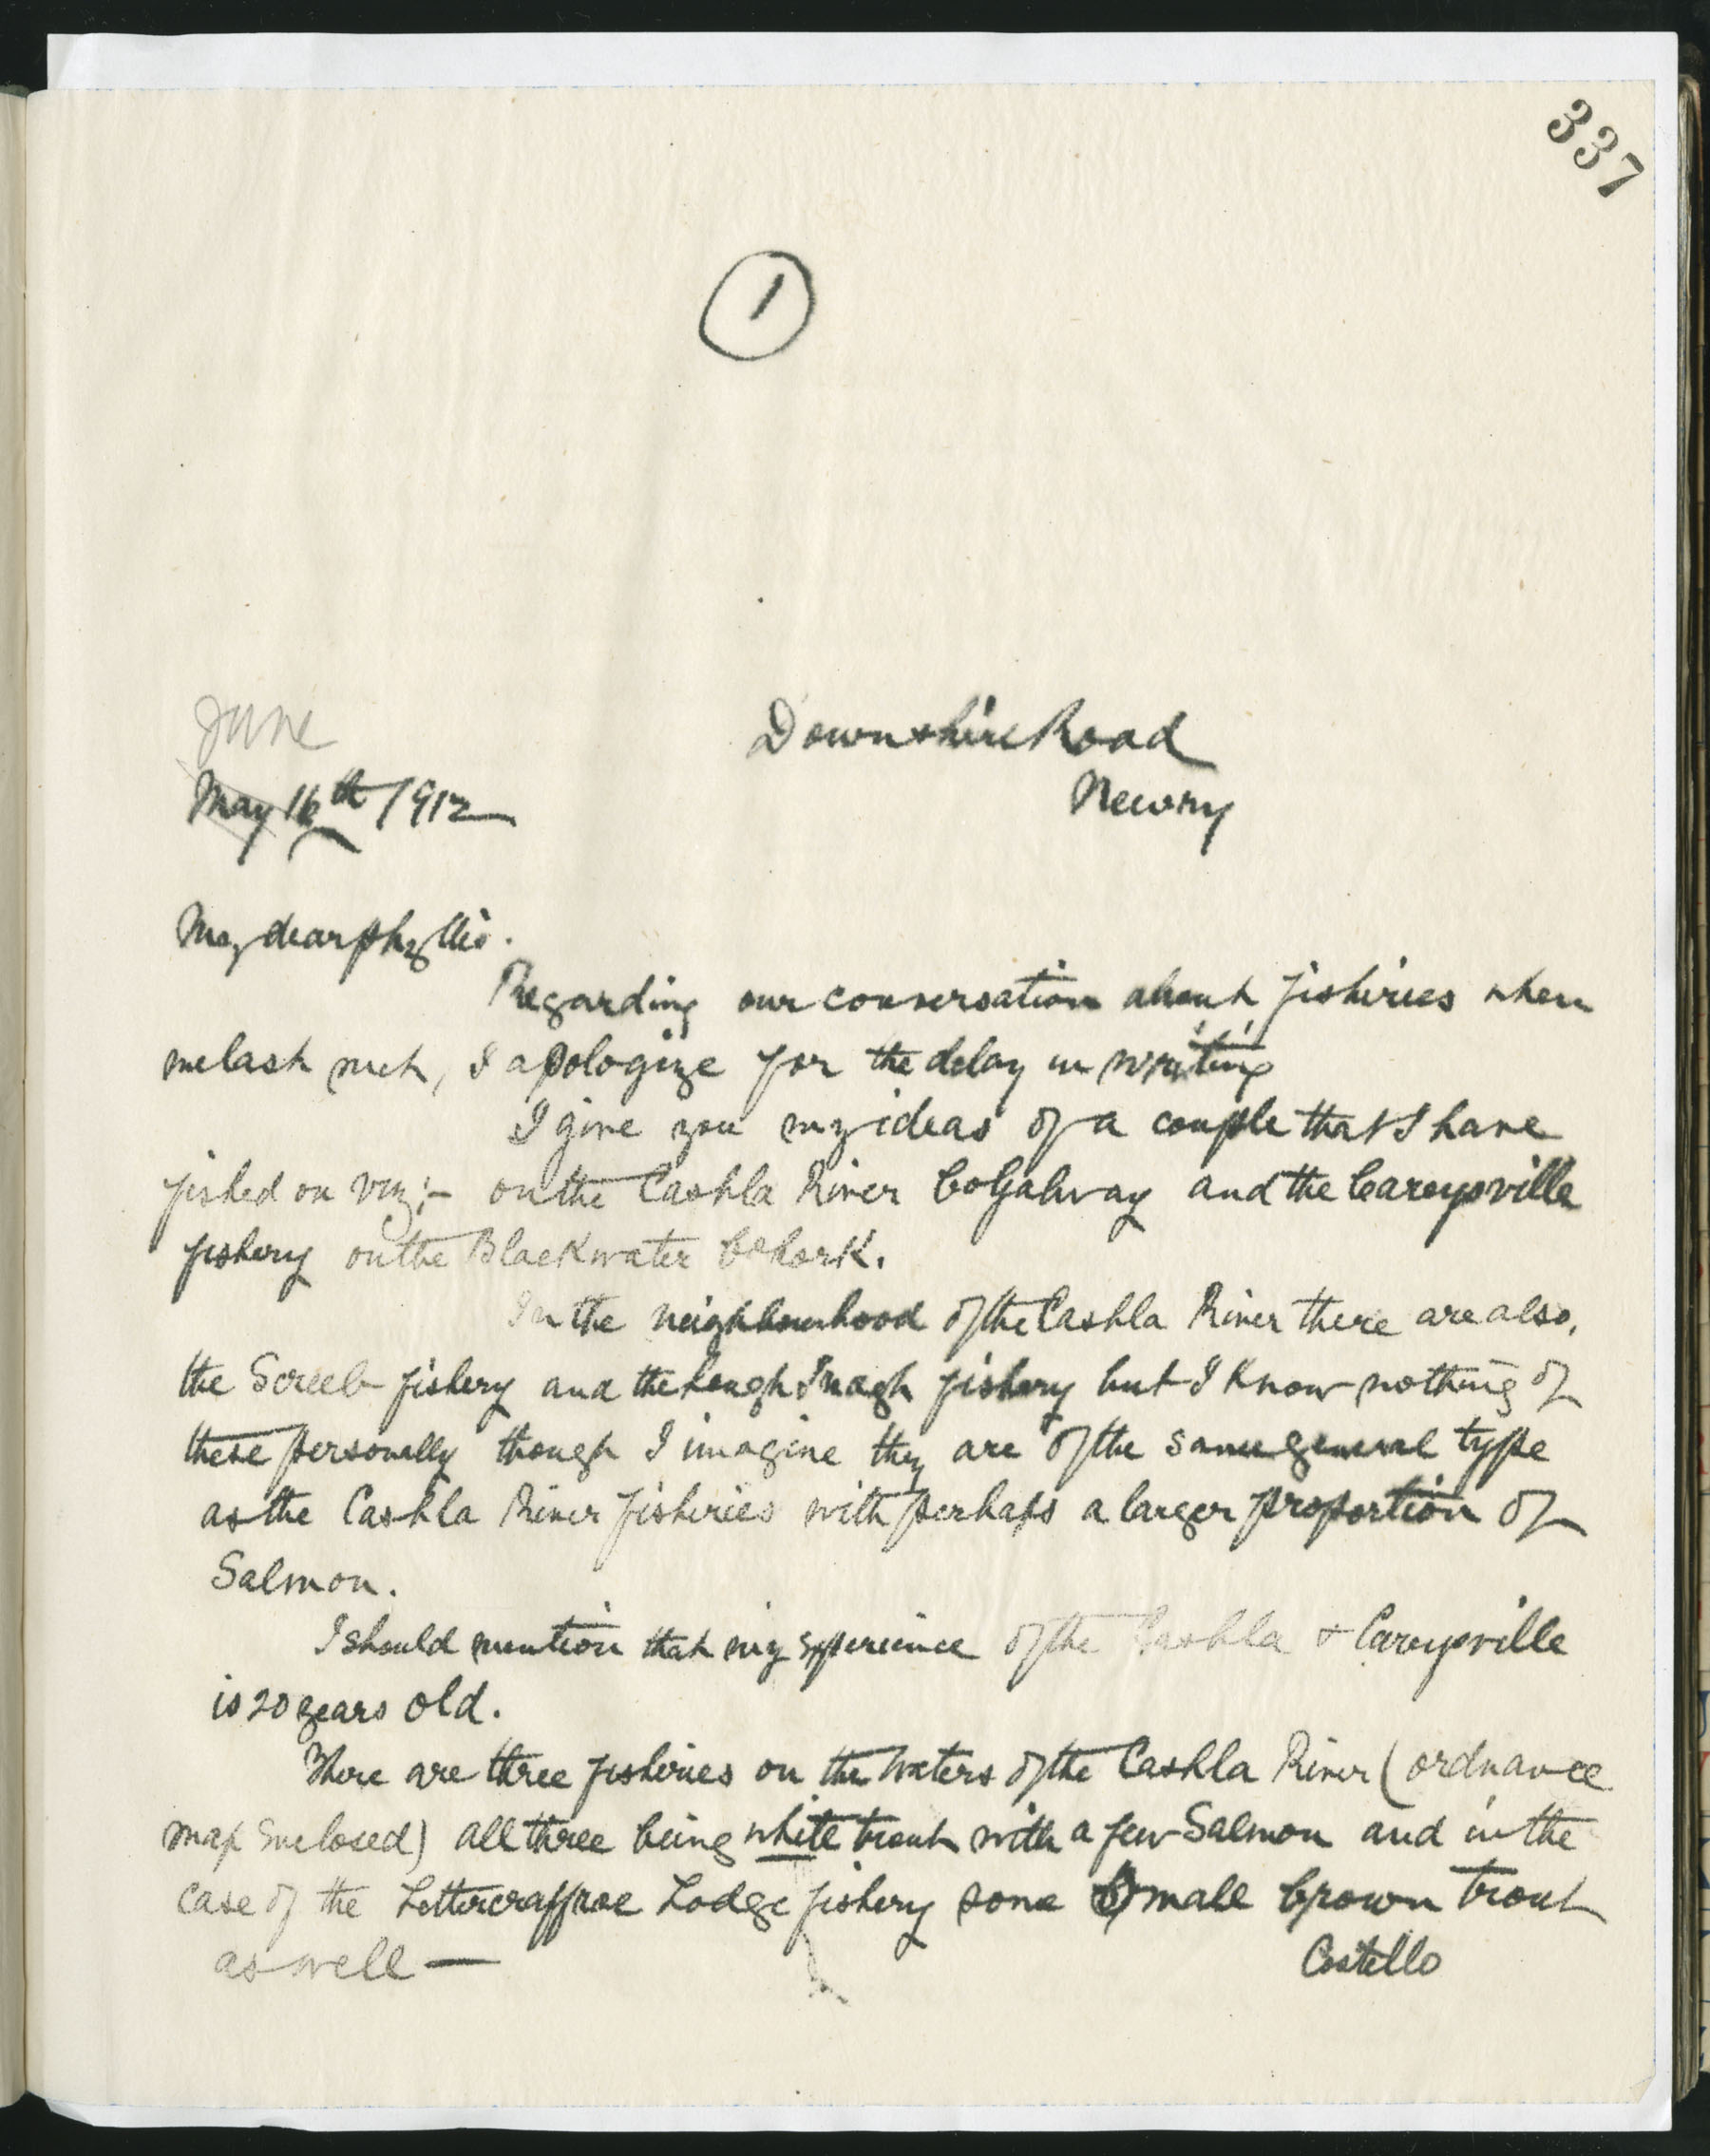 337
1
June
May 16th 1912
Downshire Road
Newry
My dear Phyllis.
Regarding our conversation about fisheries when
we last met, I apologize for the delay in writing
I give you my ideas of a couple that I have
fished on viz;- on the Cashla River Co Galway and the Careysville
fishery on the Blackwater Co Cork.
In the neighbourhood of the Cashla River there are also,
the Screeb fishery and the Lough Inagh fishery but I know nothing of
these personally though I imagine they are of the same general type
as the Cashla River fisheries with perhaps a larger proportion of
Salmon.
I should mention that my experience of the Cashla & Careysville
is 20 years old.
There are three fisheries on the waters of the Cashla River (ordnance
map Enclosed) all three being white trout with a few Salmon and in the
case of the Lettercraffroe Lodge fishery some small brown trout
as well —
Costello